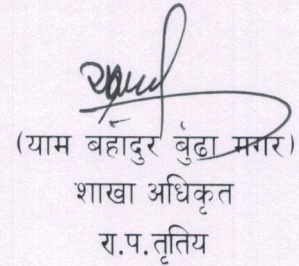 (याम बहादुर बुंढा मगर)
शाखा अधिकृत
रा.प.तृतिय